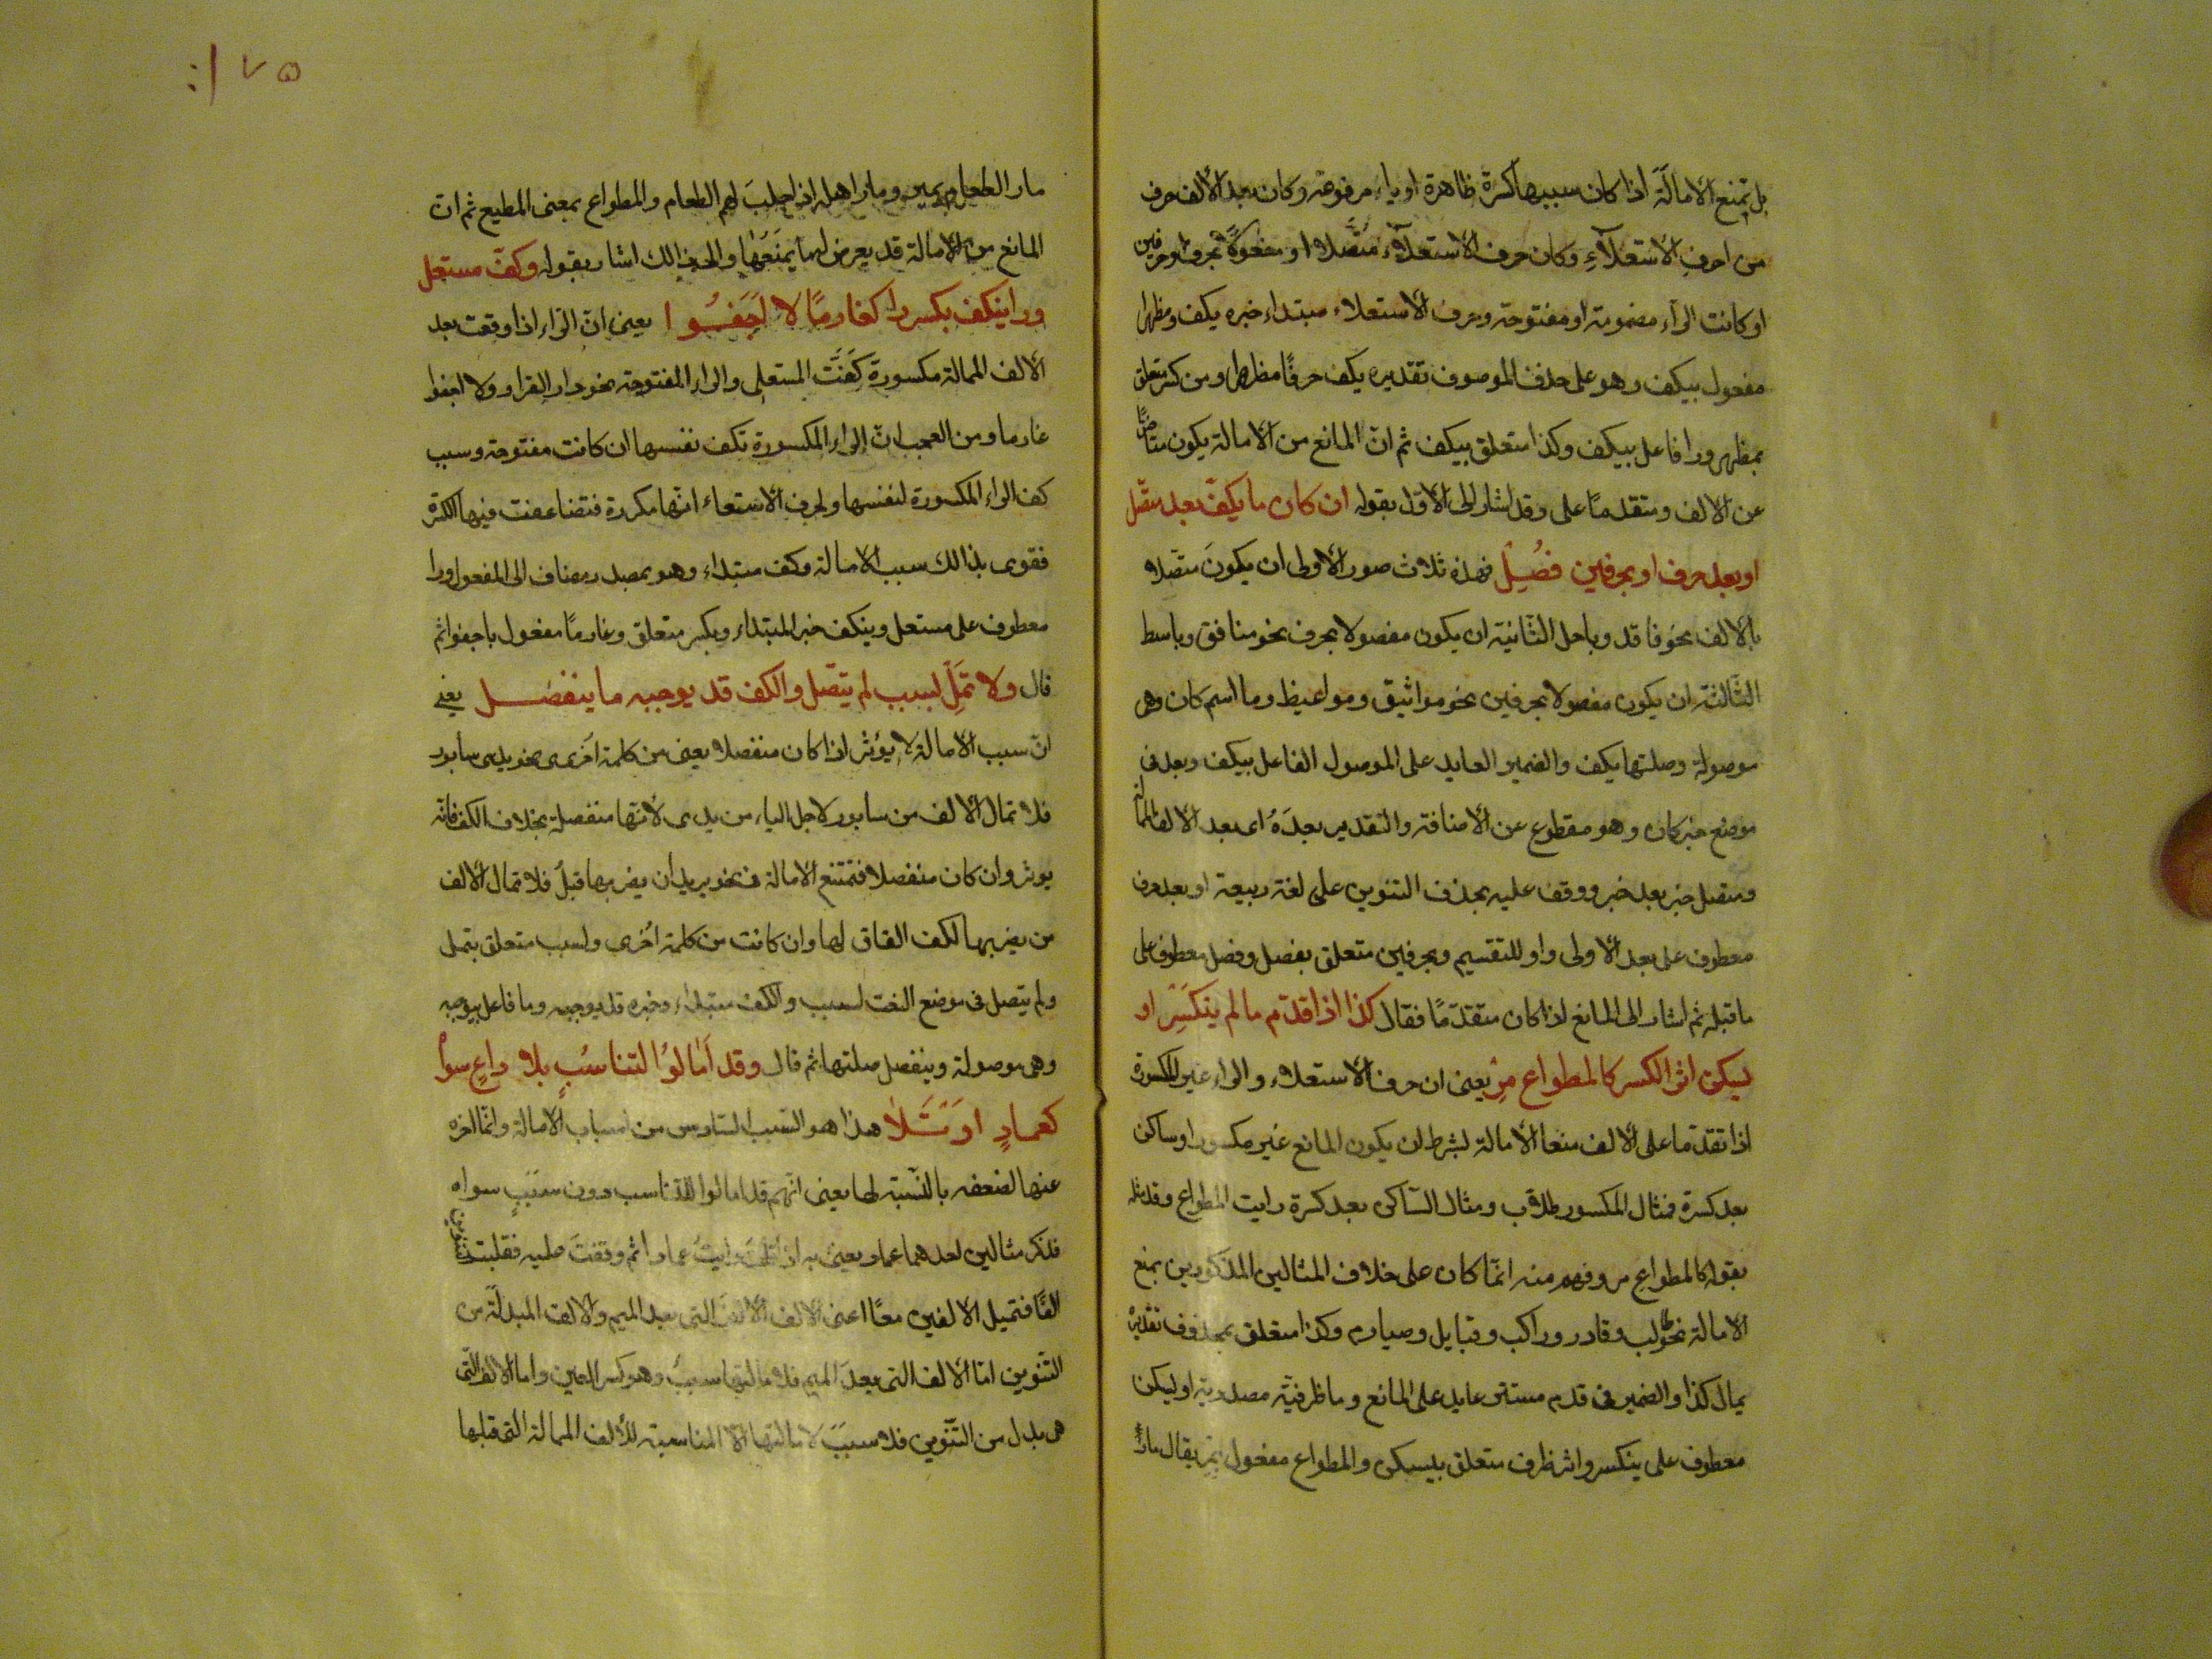 بل تمنع الامالة اذا كان سببها كسرة ظاهرة او ياء مرفوعة وكان بعد الالف حرف
من احرف الاستعلآء وكان حرف الاستعلآء متّصلا او مفصولا بحرف او حرفين
او كانت الرآء مضمومة او مفتوحة وحرف الاستعلاء مبتداء خبره يكف ومظهرا
مفعول بيكف وهو على حذف الموصوف تقديره يكف حرفًا مظهرا ومن كسر متعلق
بمظهر ورا فاعل بيكف وكذا متعلق بيكف ثم انّ المانع من الامالة يكون متاخرًا
عن الالف ومتقدمًا على وقد اشار الى الاوّل بقوله ان كان ما يكفّ بعد متّصل
او بعد حرف او بحرفين فُصِل فهذه ثلاث صور الاولى ان يكونَ متّصلا
بالالف نحو فاقد وباخل الثّانية ان يكون مفصولا بحرف نحو منافق وباسط
الثّالثة ان يكون مفصولا بحرفين نحو مواثيق ومواعيظ وما اسم كان وهى
موصولة وصلتها يكف والضمير العايد على الموصول الفاعل بيكف وبعد فى
موضع خبر كان وهو مقطوع عن الاضافة والتقدير بعدَهُ اى بعد الالف الممالة
ومتصل خبر بعد خبر ووقف عليه بحذف التنوين على لغة ربيعة او بعد حرف
معطوف على بعد الاولى واو للتقسيم وبحرفين متعلق بفصل وفصل معطوف على
ما قبله ثم اشار الى المانع اذا كان متقدّمًا فقال كذا اذا قدّم ما لم ينكَسِرْ او
يسكن اثر الكسر كالمطواع مِرْ يعنى ان حرف الاستعلاء والراء غير المكسورة
اذا تقدّما على الالف منعا الامالة بشرط ان يكون المانع غير مكسور او ساكن
بعد كسرة فمثال المكسور طلاب ومثال السّاكن بعد كسرة رايت المطواع وقد مثله
بقوله كالمطواع مر وفهم منه انّما كان على خلاف المثالين المذكورين يمنع
الامالة نحو طالب وقادر وراكب وقبايل وصيارم وكذا متعلق بمحذوف تقديره
يمال كذا والضمير فى قدم مستتر عايد على المانع وما ظرفيّة مصدرية او يسكن
معطوف على ينكسر واثر ظرف متعلق بيسكن والمطواع مفعول بمِر يقال مار
١٧٥
مار الطعام يمير ومار اهله اذا جلبَ لهم الطعام والمطواع بمعنى المطيع ثم ان
المانع من الامالة قد يعرض لها يمنَعُها والى ذالك اشار بقوله وكفّ مستعل
ورا ينكف بكسر را كغارمًا لا اَجفُوا يعنى انّ الرّاء اذا وقعت بعد
الالف الممالة مكسورة كَفَّت المستعلى والراء المفتوحة نحو دار القرار ولا اجفوا
غارما ومن العجب انّ الراء المكسورة تكف نفسها ان كانت مفتوحة وسبب
كف الراء المكسورة لنفسها ولحرف الاستعاء انّها مكررة فتضاعفت فيها الكسرة
فقوى بذالك سبب الامالة وكف مبتداء وهو مصدر مضاف الى المفعول ورا
معطوف على مستعل وينكف خبر المبتداء وبكسر متعلق وغارمًا مفعول باجفوا ثم
قال ولا تمَلِ لسبب لم يتّصل والكف قد يوجبه ما ينفصل يعنى
انّ سبب الامالة لا يؤثر اذا كان منفصلا يعنى من كلمة اخرى نحو يدى سابور
فلا تمال الالف من سابور لاجل الياء من يدى لانّها منفصلة بخلاف الكف فانّه
يوثر وان كان منفصلا فتمتنع الامالة فى نحو يريد ان يضربها قبلُ فلا تمال الالف
من يضربها لكف القاف لها وان كانت من كلمة اخرى ولسبب متعلق بتمل
ولم يتصل فى موضع النعت لسبب والكف مبتداء وخبره قد يوجبه وما فاعل بيوجبه
وهى موصولة وينفصل صلتها ثم قال وقد اَمالُوا لتناسُبٍ بلا داعٍ سواهُ
كعمادٍ او تَلا هذا هو السّبب السّادس من اسباب الامالة وانّما اخره
عنها لضعفه بالنّسبة لها يعنى انّهم قد امالوا للتّناسب دون سبَبٍ سواه
فذكر مثالين احدهما عمادا يعنى به اذا قلتَ رايتُ عمادا ثم وقفتَ عليه فقلبت تنوينه
الفًا فتميل الالفين معًا اعنى الالف الالف التى بعد الميم والالف المبدلة من
التّنوين امّا الالف التى بعدَ الميم فلامالتها سببٌ وهو كسر العين واما الالف التى
هى بدل من التّنوين فلا سببَ لامالتها الّا المناسبة للالف الممالة التى قبلها